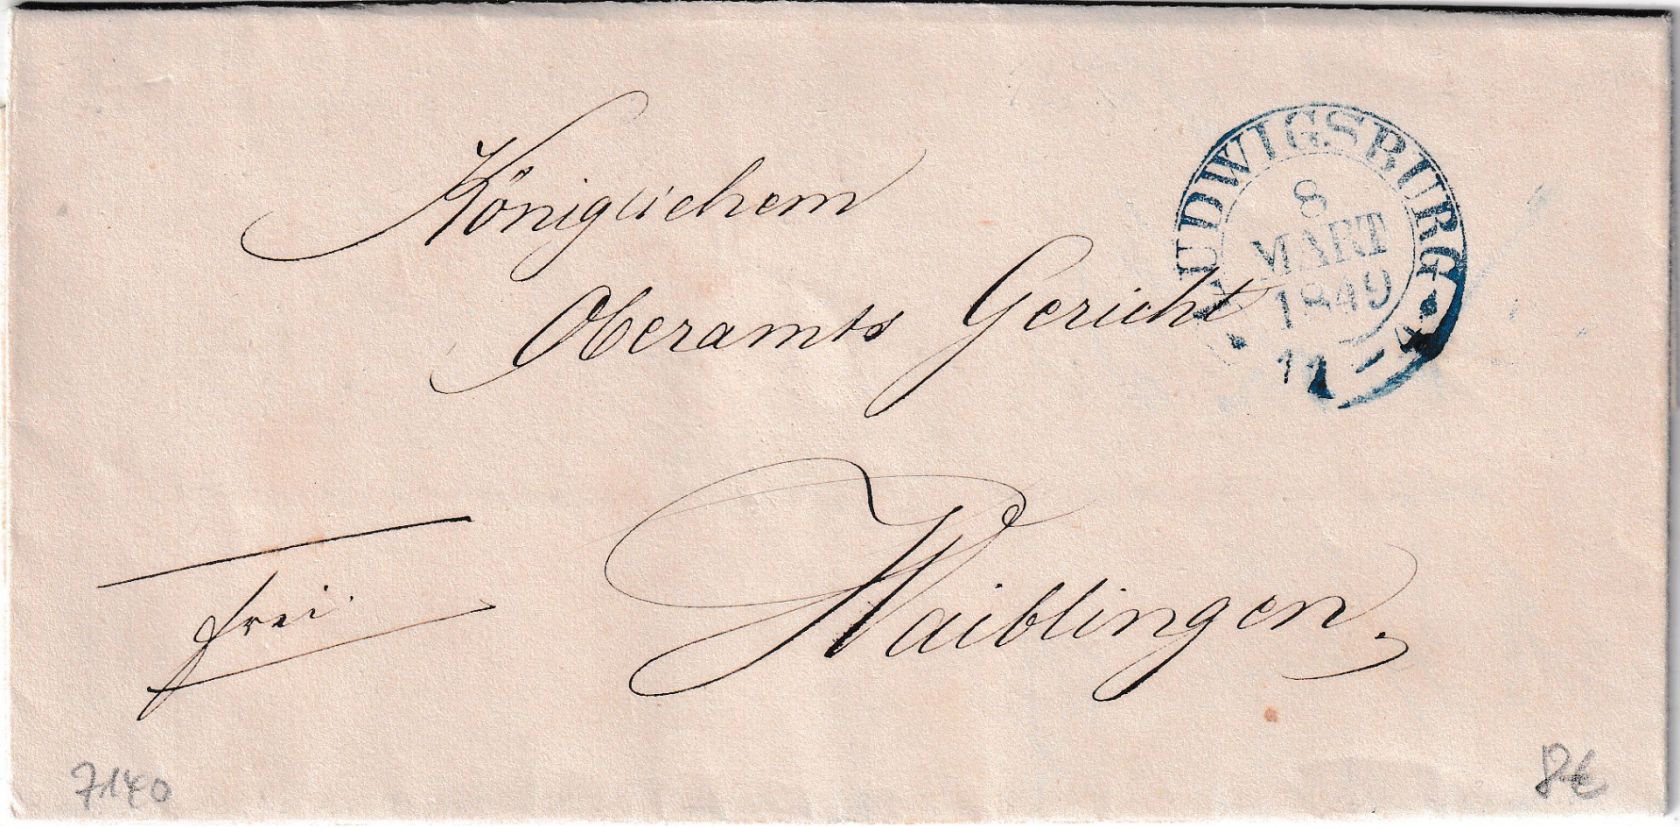 Königlichem
Oberamts Gericht
Waiblingen.
frei.
LUDWIGSBURG
8
MART
1849
11 - 4
7140
8€